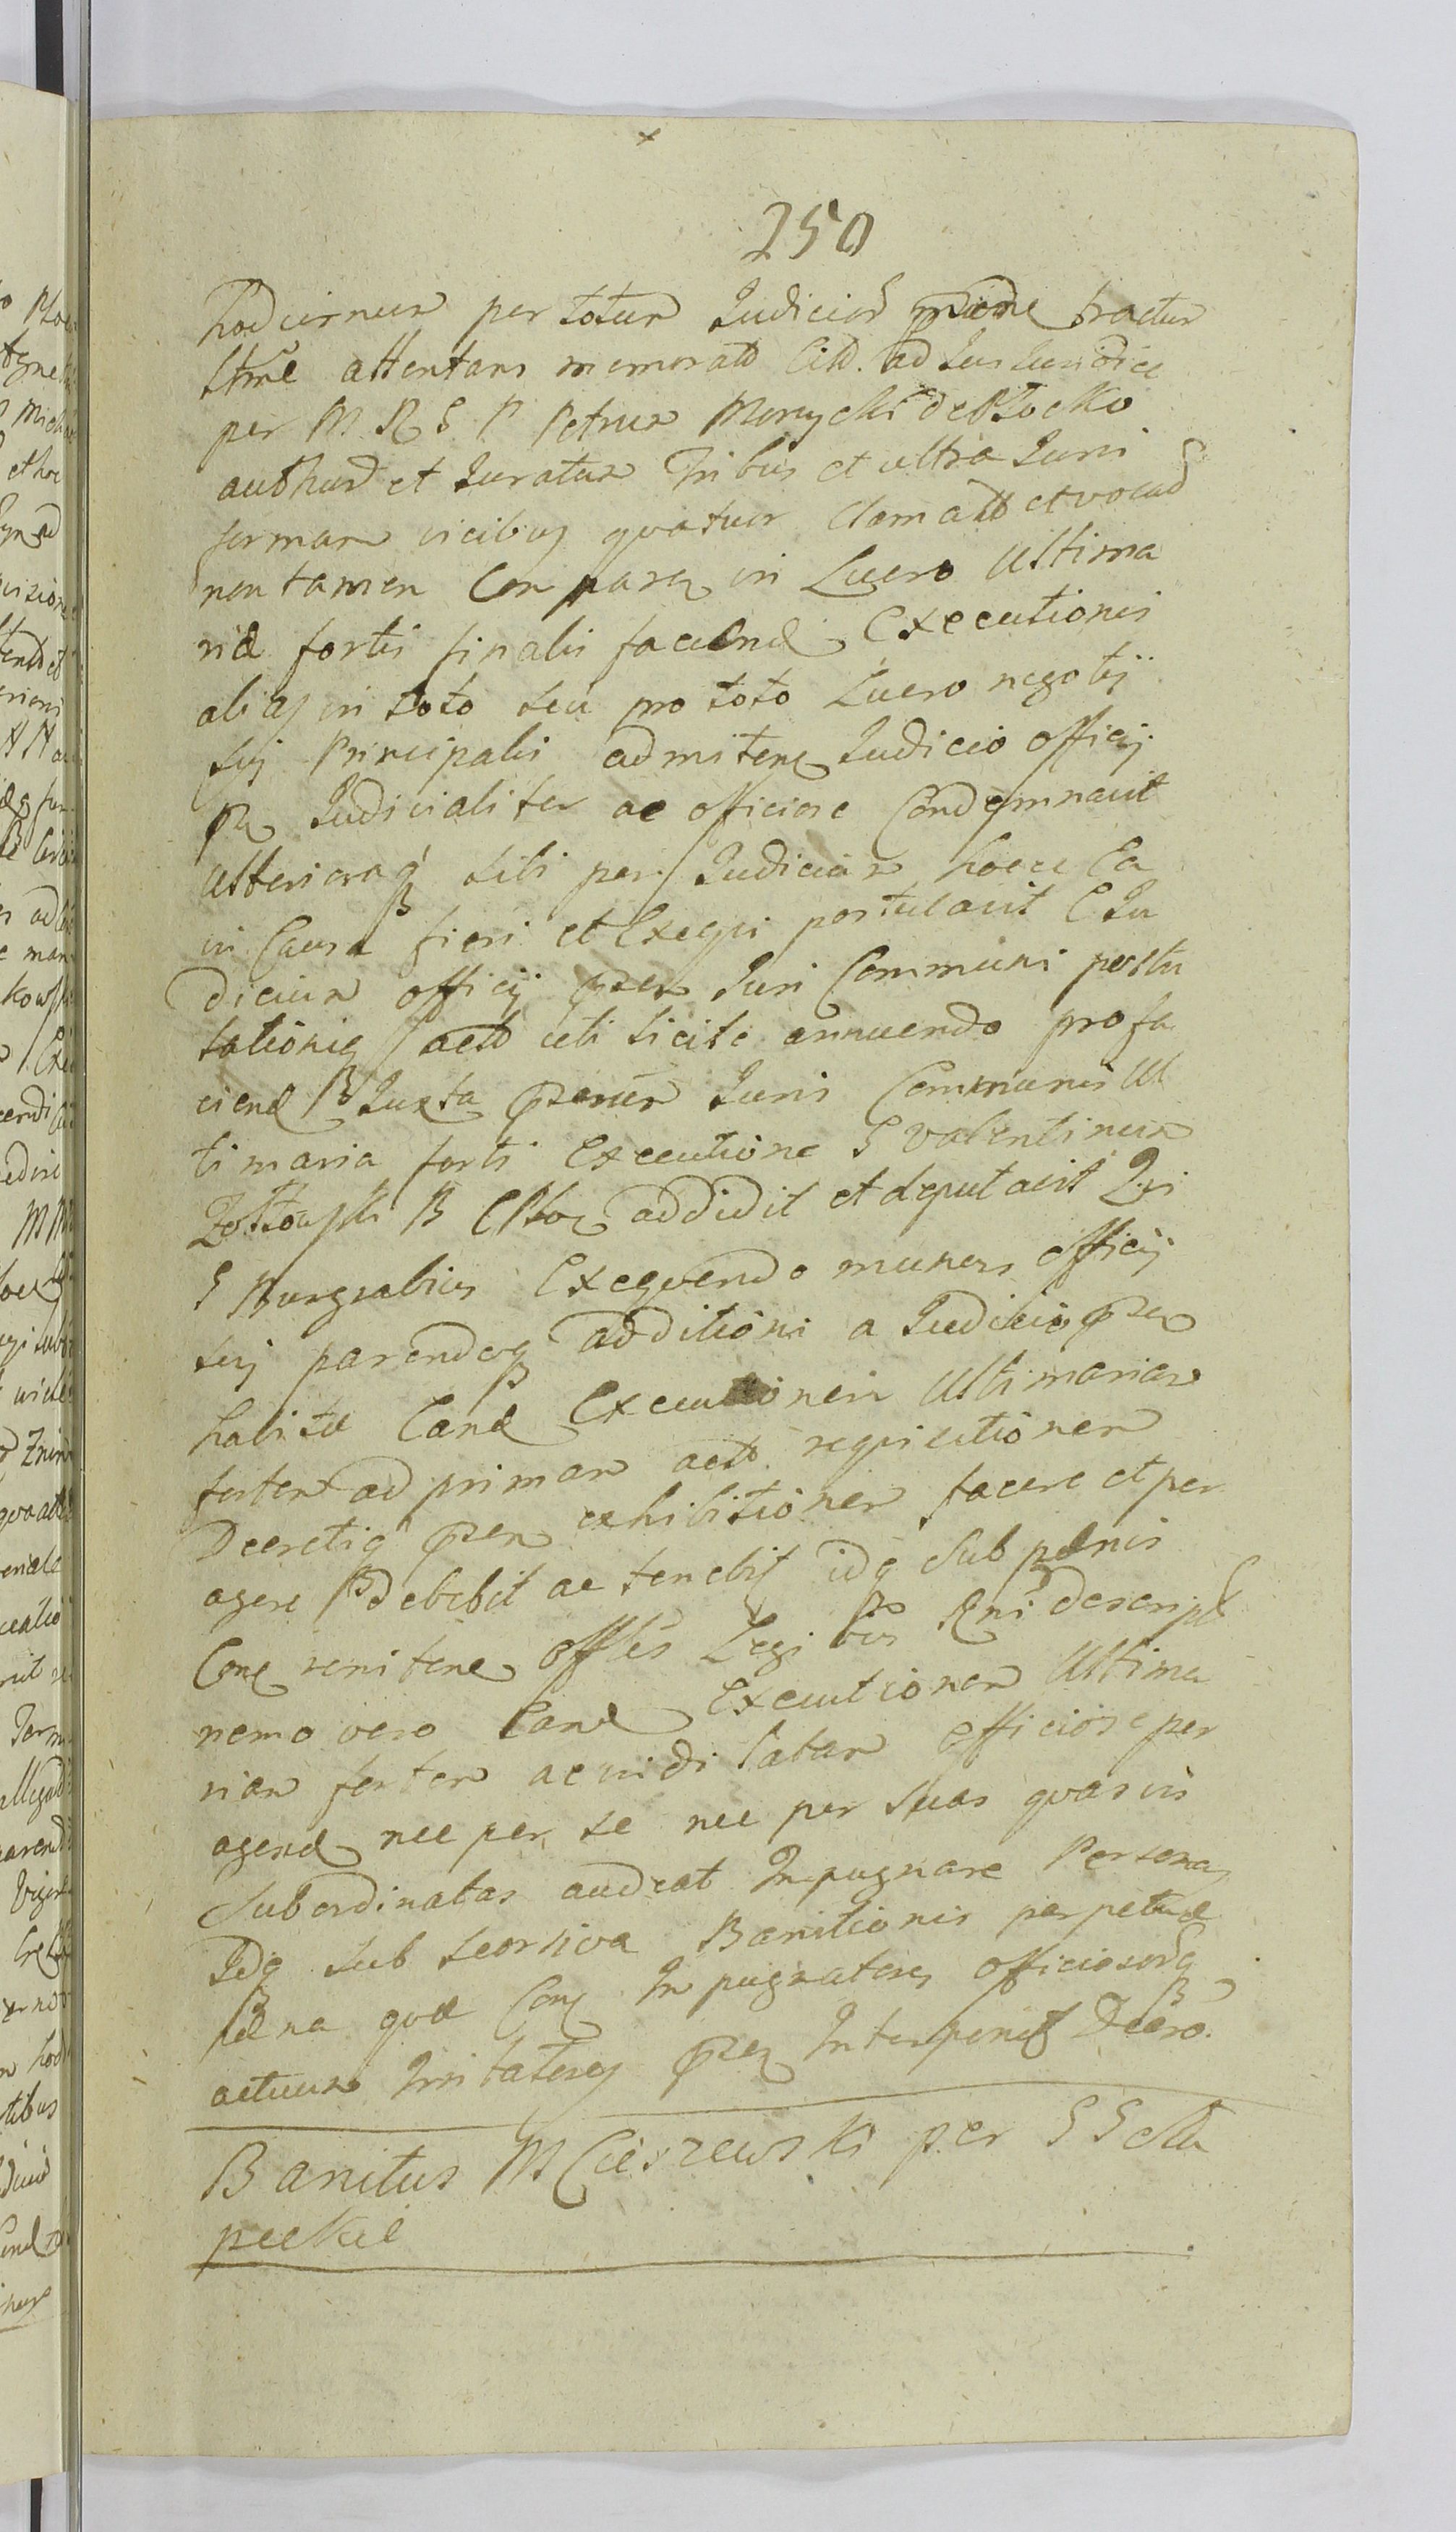 250
hodiernum per totum Judiciord tractum
attentans memorat Citt. ad Jus Juridice
per M R G P Petrum Monycki de Plocko
authord et Juratum Tribus et ultra Juris
formam vicibus quatuor clamatt et vocatd
non tamen Comparen in Lucro Ultima
riæ fortis finalis faciend Executionis
alias in toto seu pro toto Lucro negotij
sui Principalis admitten Judicio officij
pn Judicialiter ac officiose Condemnavit
Ulterioraq sibi per Judicium hocce Ea
in Causa fieri et Exeqvi postulavit E Ju
dicium officij præn Juri Communi postu
lationiq actt uti licite annuendo pro fa
ciend Juxta Juris Communis Ul
timaria forti Executione G Valentinum
B C Ploc addidit et deputavit Qvi
G Burgrabius Exeqvendo muneris officij
sui parendoq additioni a Judicio præn
habitæ Eand Executionem Ultimariam
fortem ad primam actt reqvisitionem
Decretiq præn exhibitionem facere et per
agere debebit ac tenebit idq sub pænis
Con reniten offles Legibus Rni descript
nemo vero Eand Executionem Ultima
riam fortem ac officiose per
agend nec per se nec per suas qvasvis
Subordinatas audeat Inpugnare Personas
Idq sub seorsiva Banitionis perpetuæ
pæna qvæ Con Inpugnatores officiosordq
actuum Irritatores præn Interponet Decro.
Banitus M Cieszewski per G G